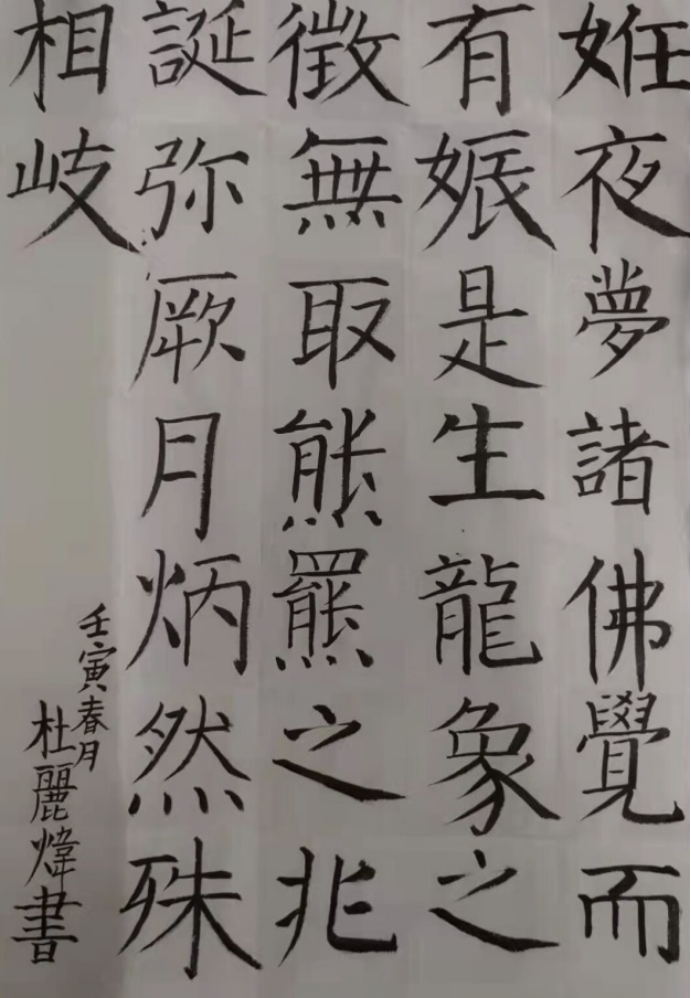 姙夜夢諸佛覺而
有娠是生龍象之
徵無取熊羆之兆
誕弥厥月炳然殊
相岐
壬寅春月
杜麗煒書